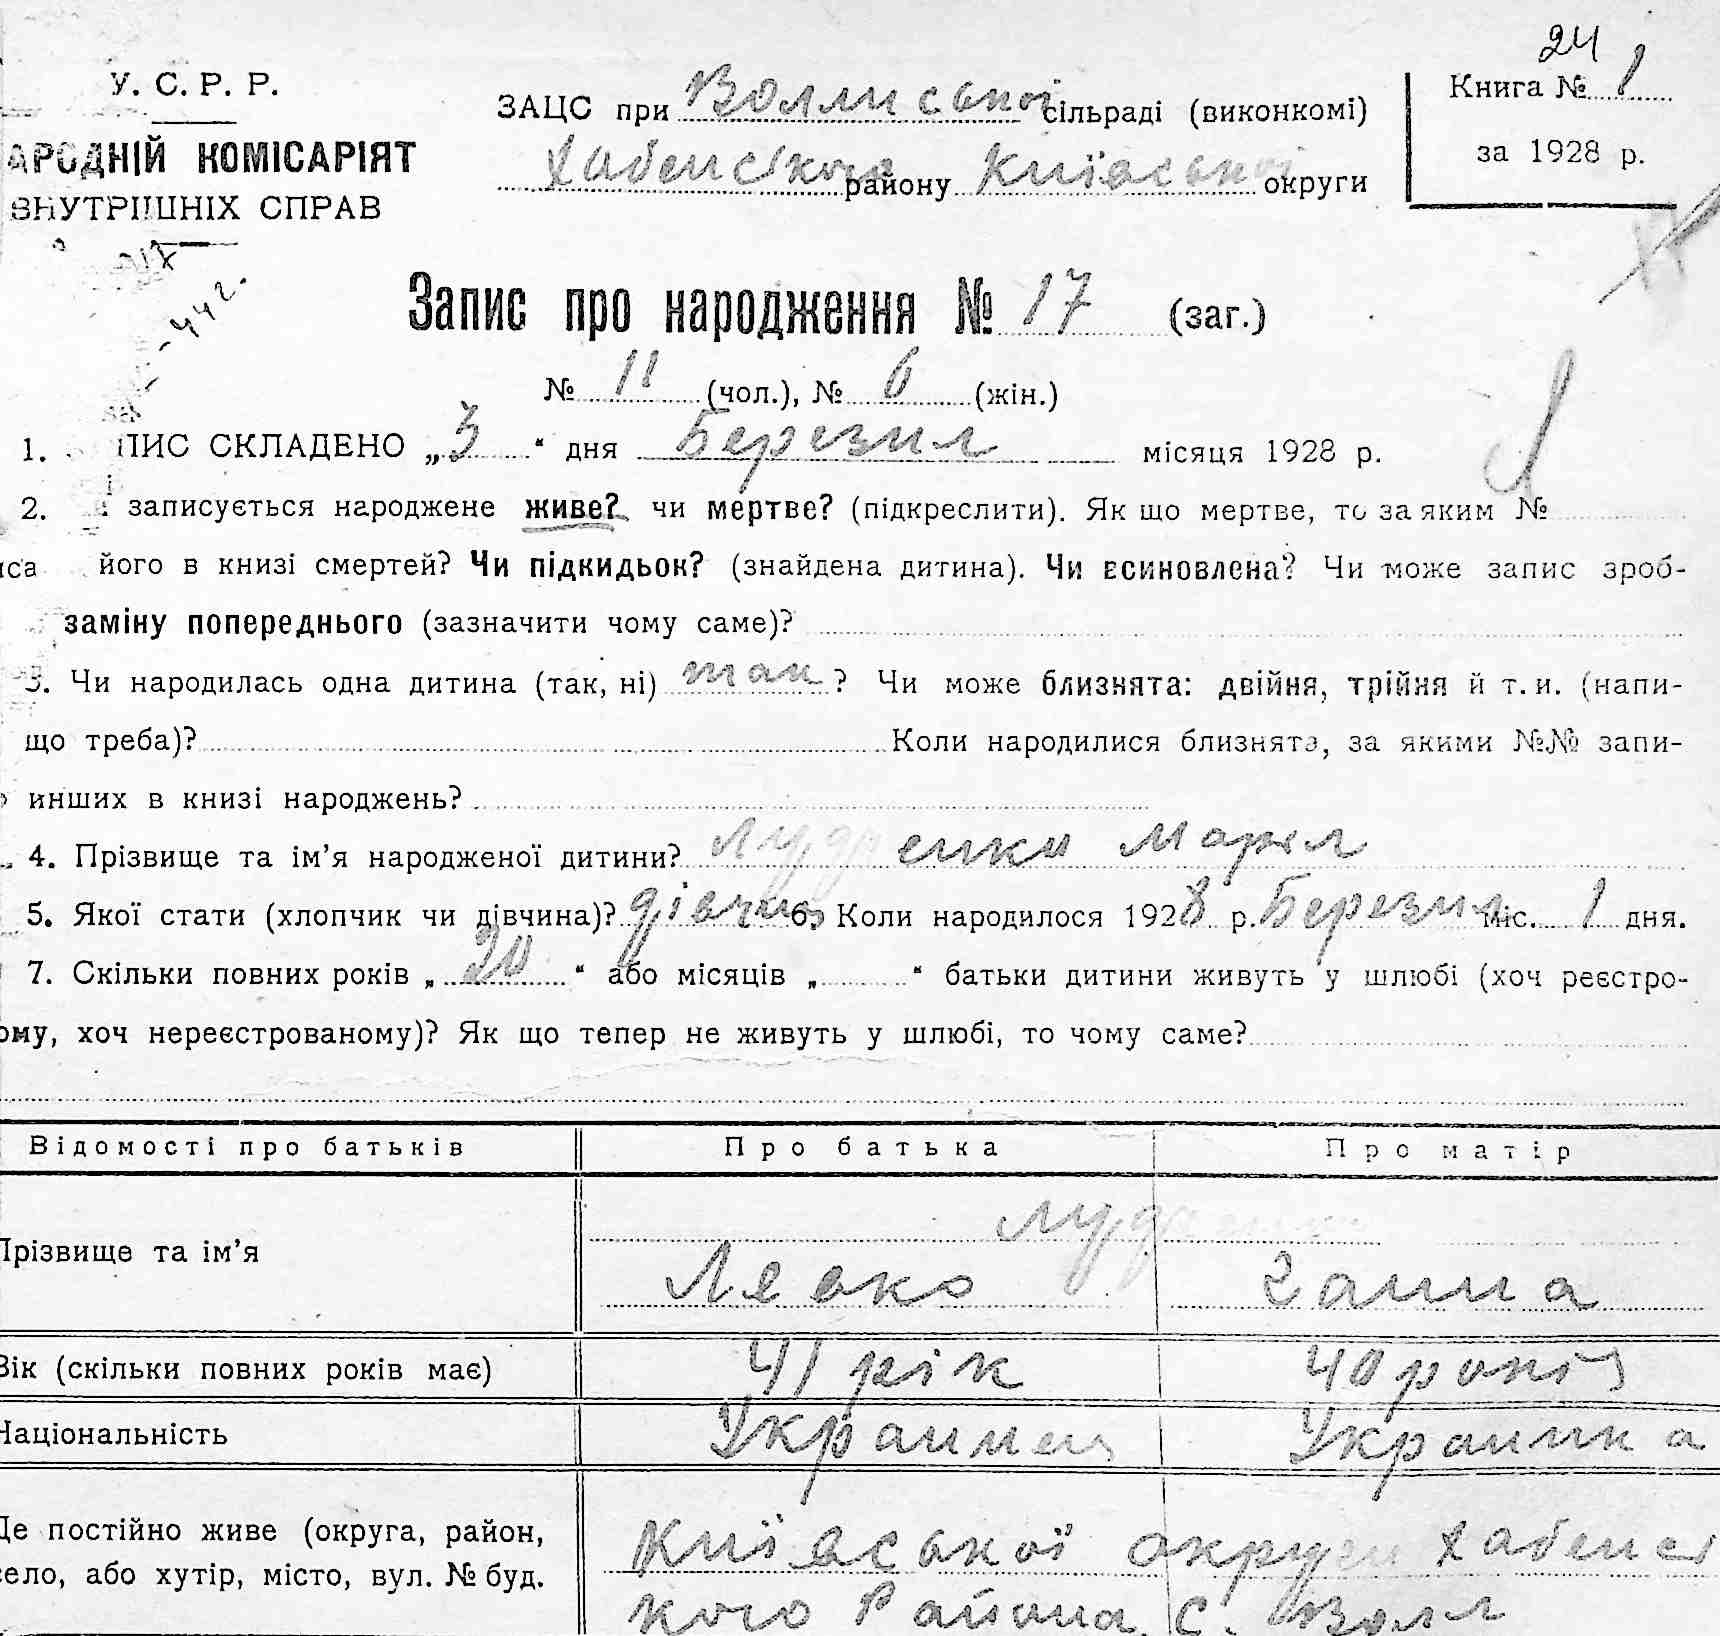 24
У. С. Р. Р.
АРОДНІЙ КОМІСАРІЯТ
ВНУТРІШНІХ СПРАВ
ЗАЦС при Воллиської сільраді (виконкомі)
Хабенського району Київської округи
Книга № 1
за 1928 р.
44 г.
Запис про народження № 17 (заг.)
№ 11 (чол.), № 6 (жін.)
1. ПИС СКЛАДЕНО „3“ дня Березня місяця 1928 р.
2. записується народжене живе? чи мертве? (підкреслити). Як що мертве, то за яким №
його в книзі смертей? Чи підкидьок? (знайдена дитина). Чи всиновлена? Чи може запис зроб-
заміну попереднього (зазначити чому саме)?
3. Чи народилась одна дитина (так, ні) так? Чи може близнята: двійня, трійня й т. и. (напи-
що треба)? Коли народилися близнята, за якими №№ запи-
инших в книзі народжень?
4. Прізвище та ім’я народженої дитини? Марія
5. Якої стати (хлопчик чи дівчина)? дівчин 6. Коли народилося 1928 р. Березня міс. 1 дня.
7. Скільки повних років „20“ або місяців „ “ батьки дитини живуть у шлюбі (хоч реєстро-
ому, хоч нереєстрованому)? Як що тепер не живуть у шлюбі, то чому саме?
Відомості про батьків Про батька Про матір
Прізвище та ім’я
Левко Ганна
Вік (скільки повних років має) 41 рік 40 років
Національність Украинец Украинка
Де постійно живе (округа, район,
село, або хутір, місто, вул. № буд.
Київської округи Хабенсь
кого Района С. Волл